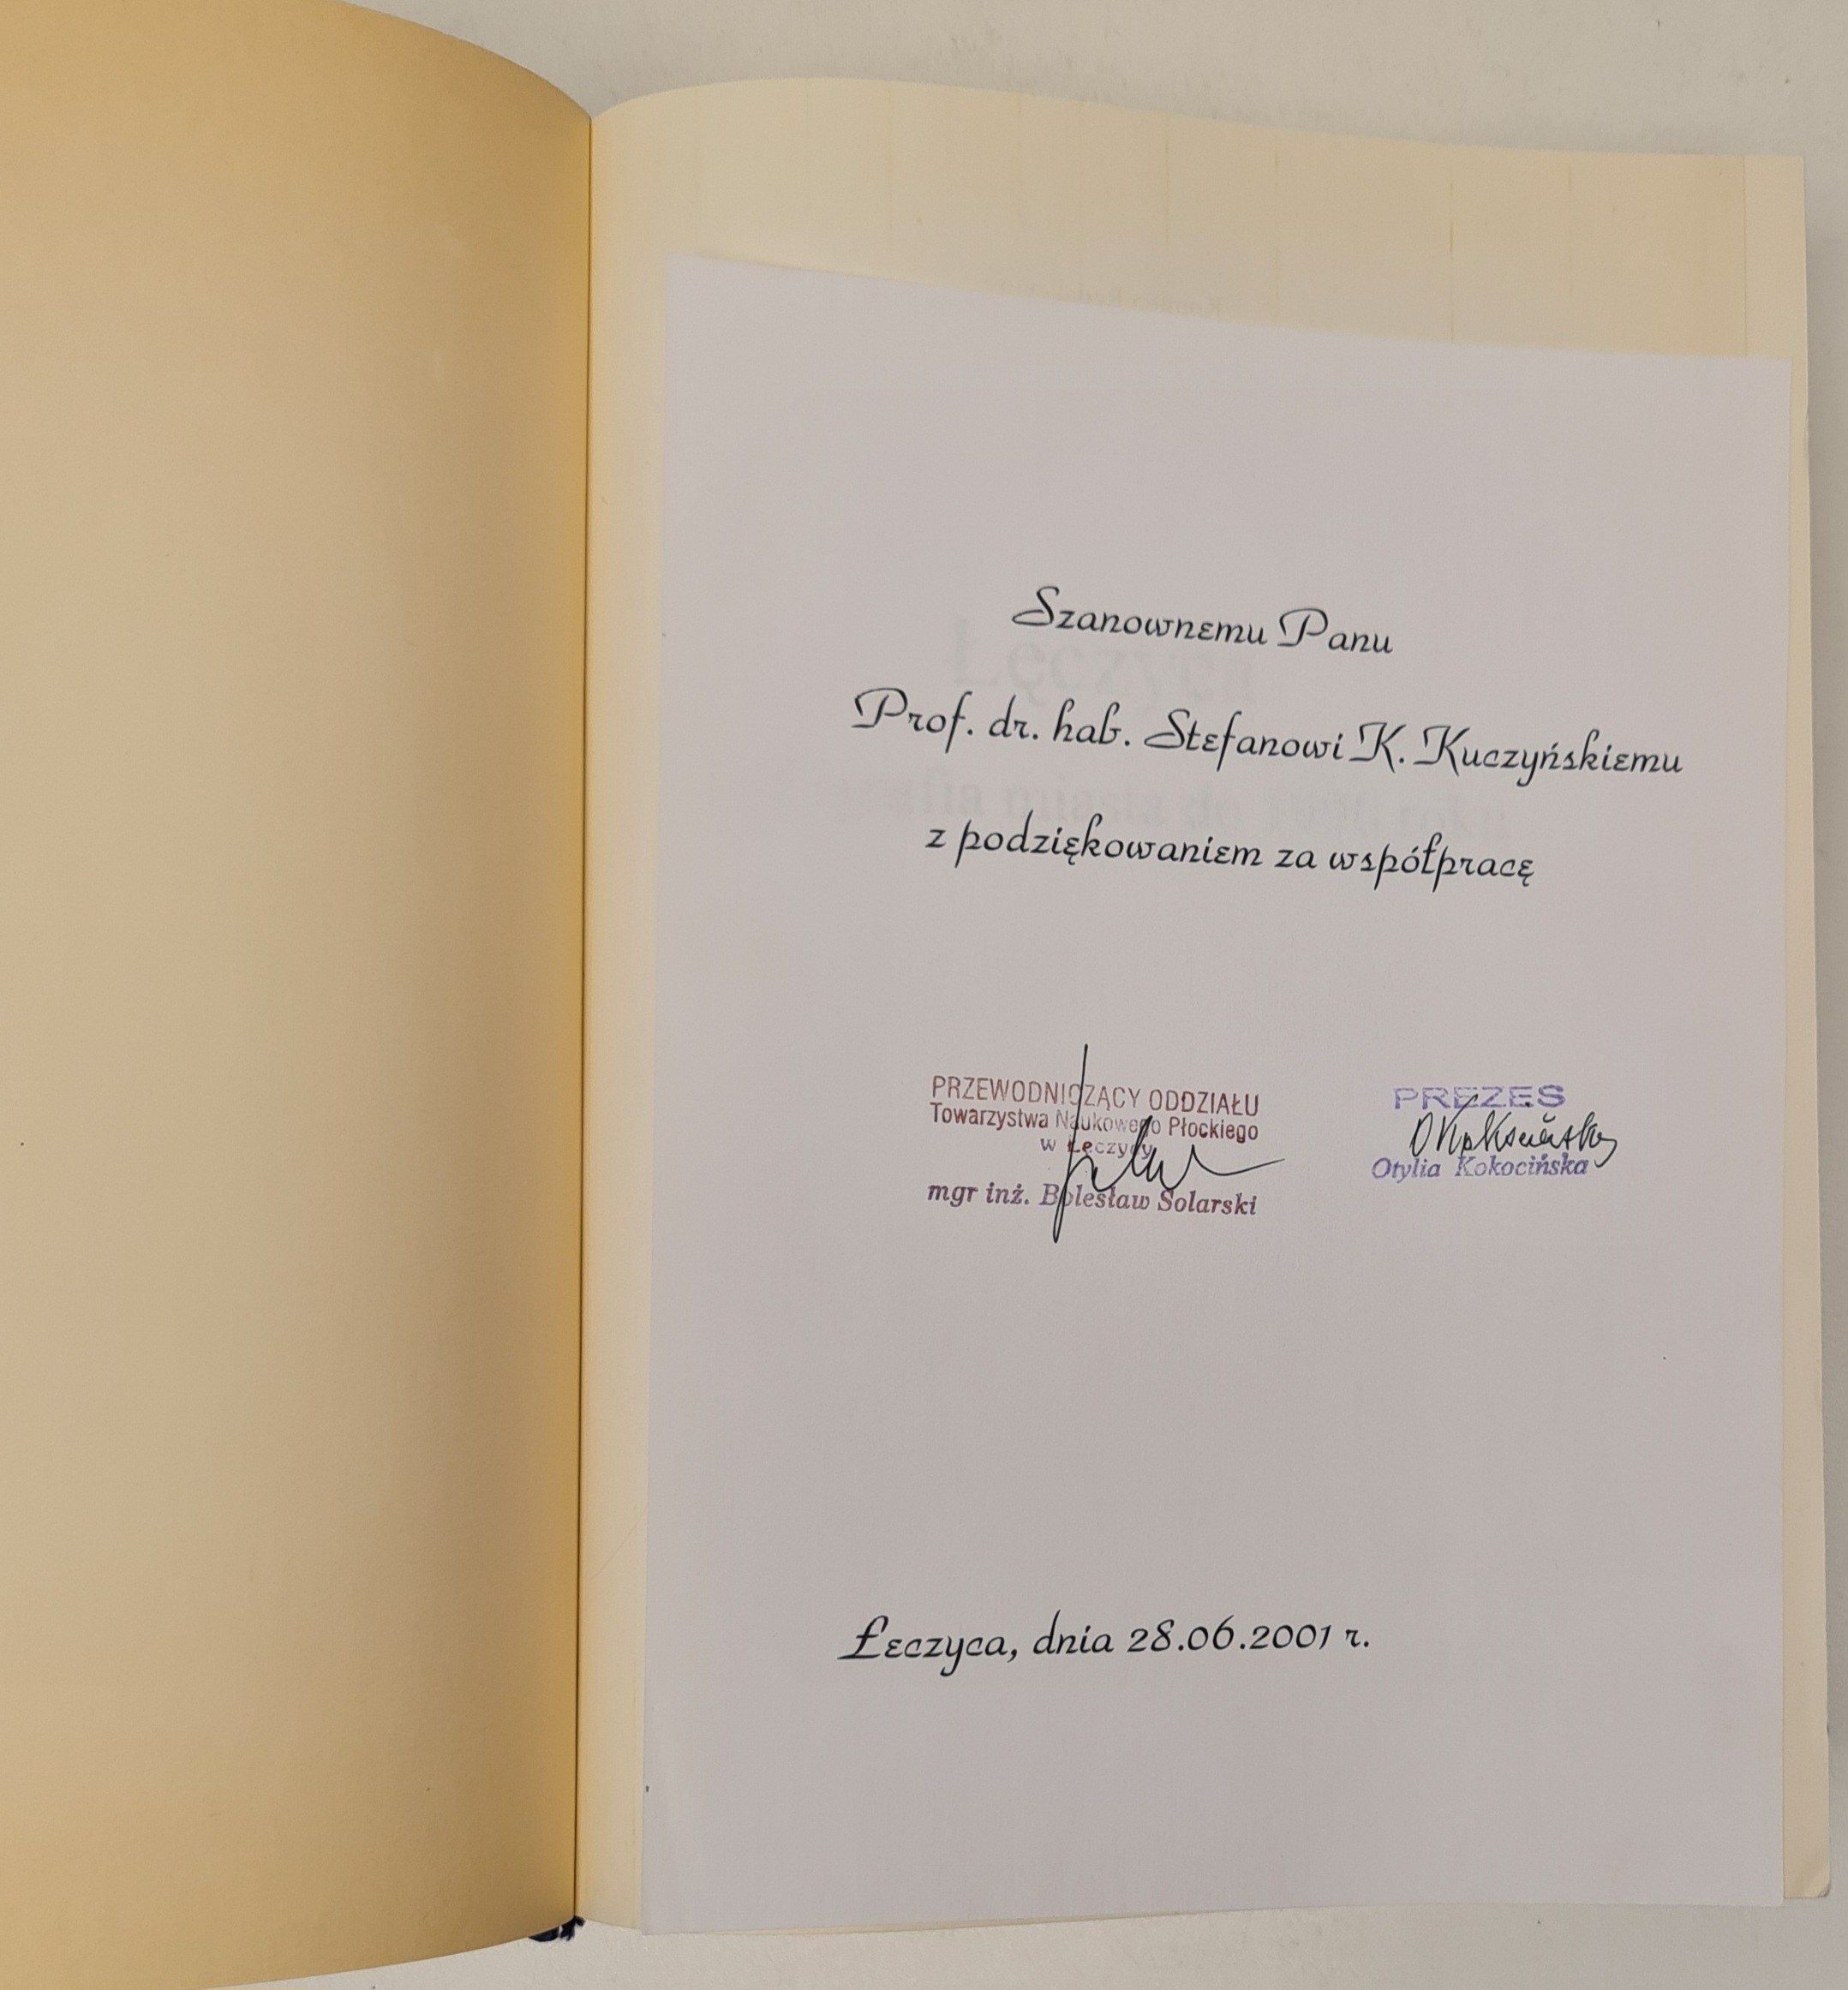 Szanownemu Panu
Prof. dr. hab. Stefanowi K. Kuczyńskiemu
z podziękowaniem za współpracę
PRZEWODNICZĄCY ODDZIAŁU
Towarzystwa Naukowego Płockiego
w Łęczycy
mgr inż. Bolesław Solarski
PREZES
Otylia Kokocińska
Łeczyca, dnia 28.06.2001 r.